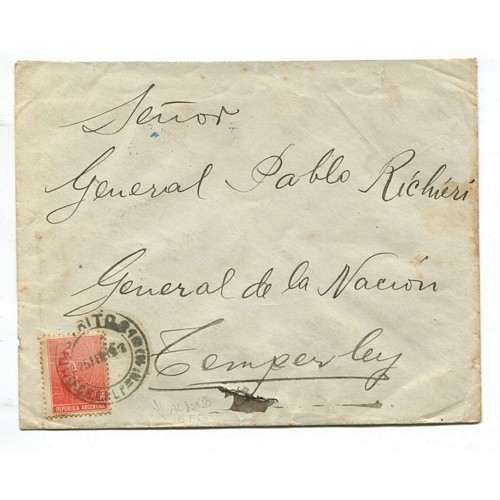 Señor
General Pablo Richieri
General de la Nación
Temperley
REPUBLICA ARGENTINA